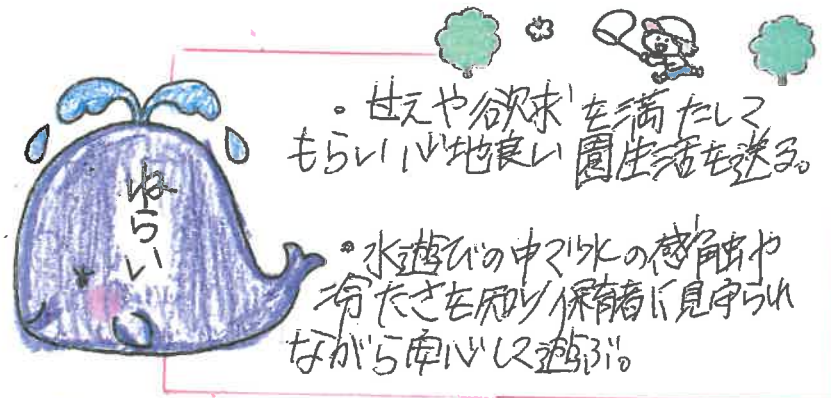 ねらい
・甘えや欲求を満たして
もらい心地良い園生活を送る。
・水遊びの中で水の感触や
冷たさを知り保育者に見守られ
ながら安心して遊ぶ。